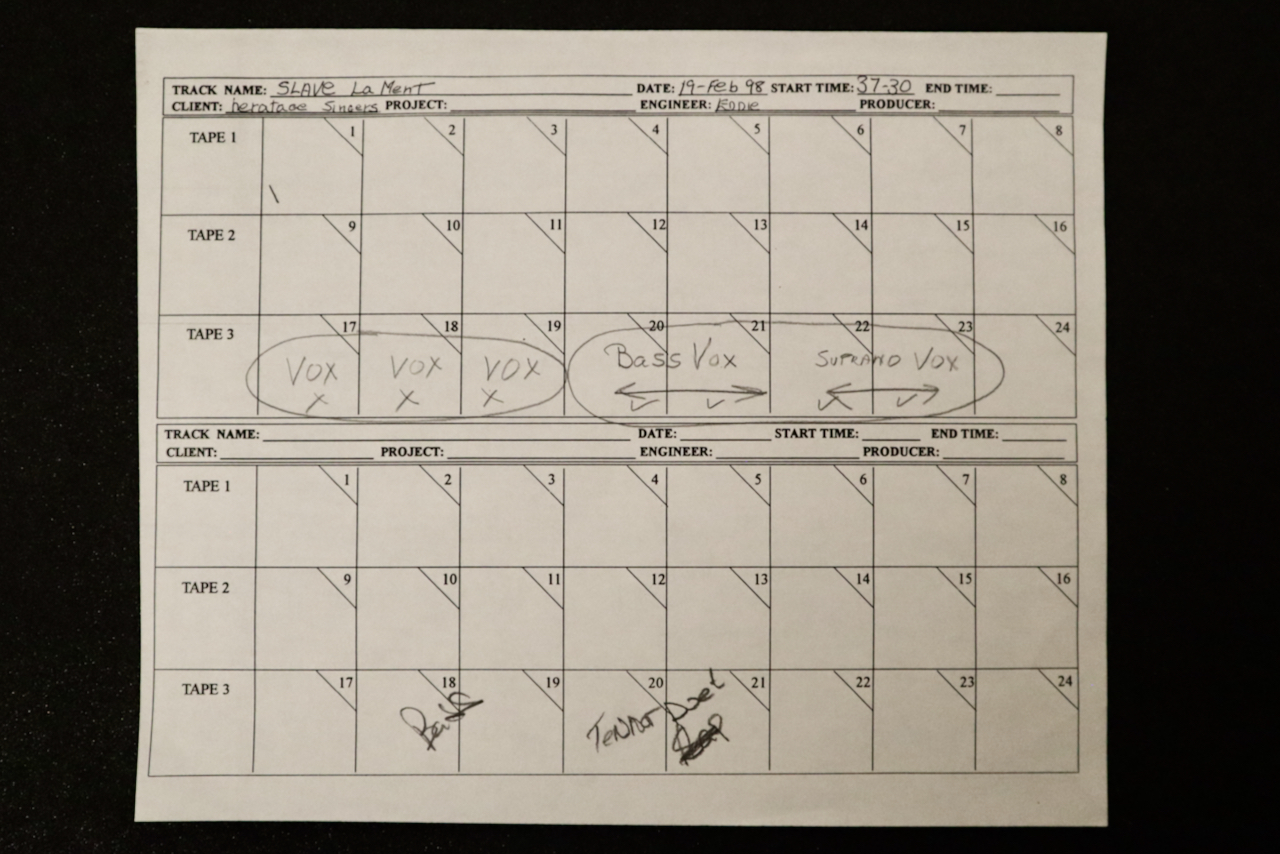 TRACK NAME: SLAVE La MenT DATE: 19-Feb 98 START TIME: 37-30 END TIME:
CLIENT: heratage Singers PROJECT: ENGINEER: EDDIE PRODUCER:
TAPE 1 1 2 3 4 5 6 7 8
TAPE 2 9 10 11 12 13 14 15 16
TAPE 3 17 18 19 20 21 22 23 24
VOX VOX VOX Bass Vox SUPRANO VOX
x x x ✓ ✓ ✓ ✓
TRACK NAME: DATE: START TIME: END TIME:
CLIENT: PROJECT: ENGINEER: PRODUCER:
TAPE 1 1 2 3 4 5 6 7 8
TAPE 2 9 10 11 12 13 14 15 16
TAPE 3 17 18 19 20 21 22 23 24
Duet